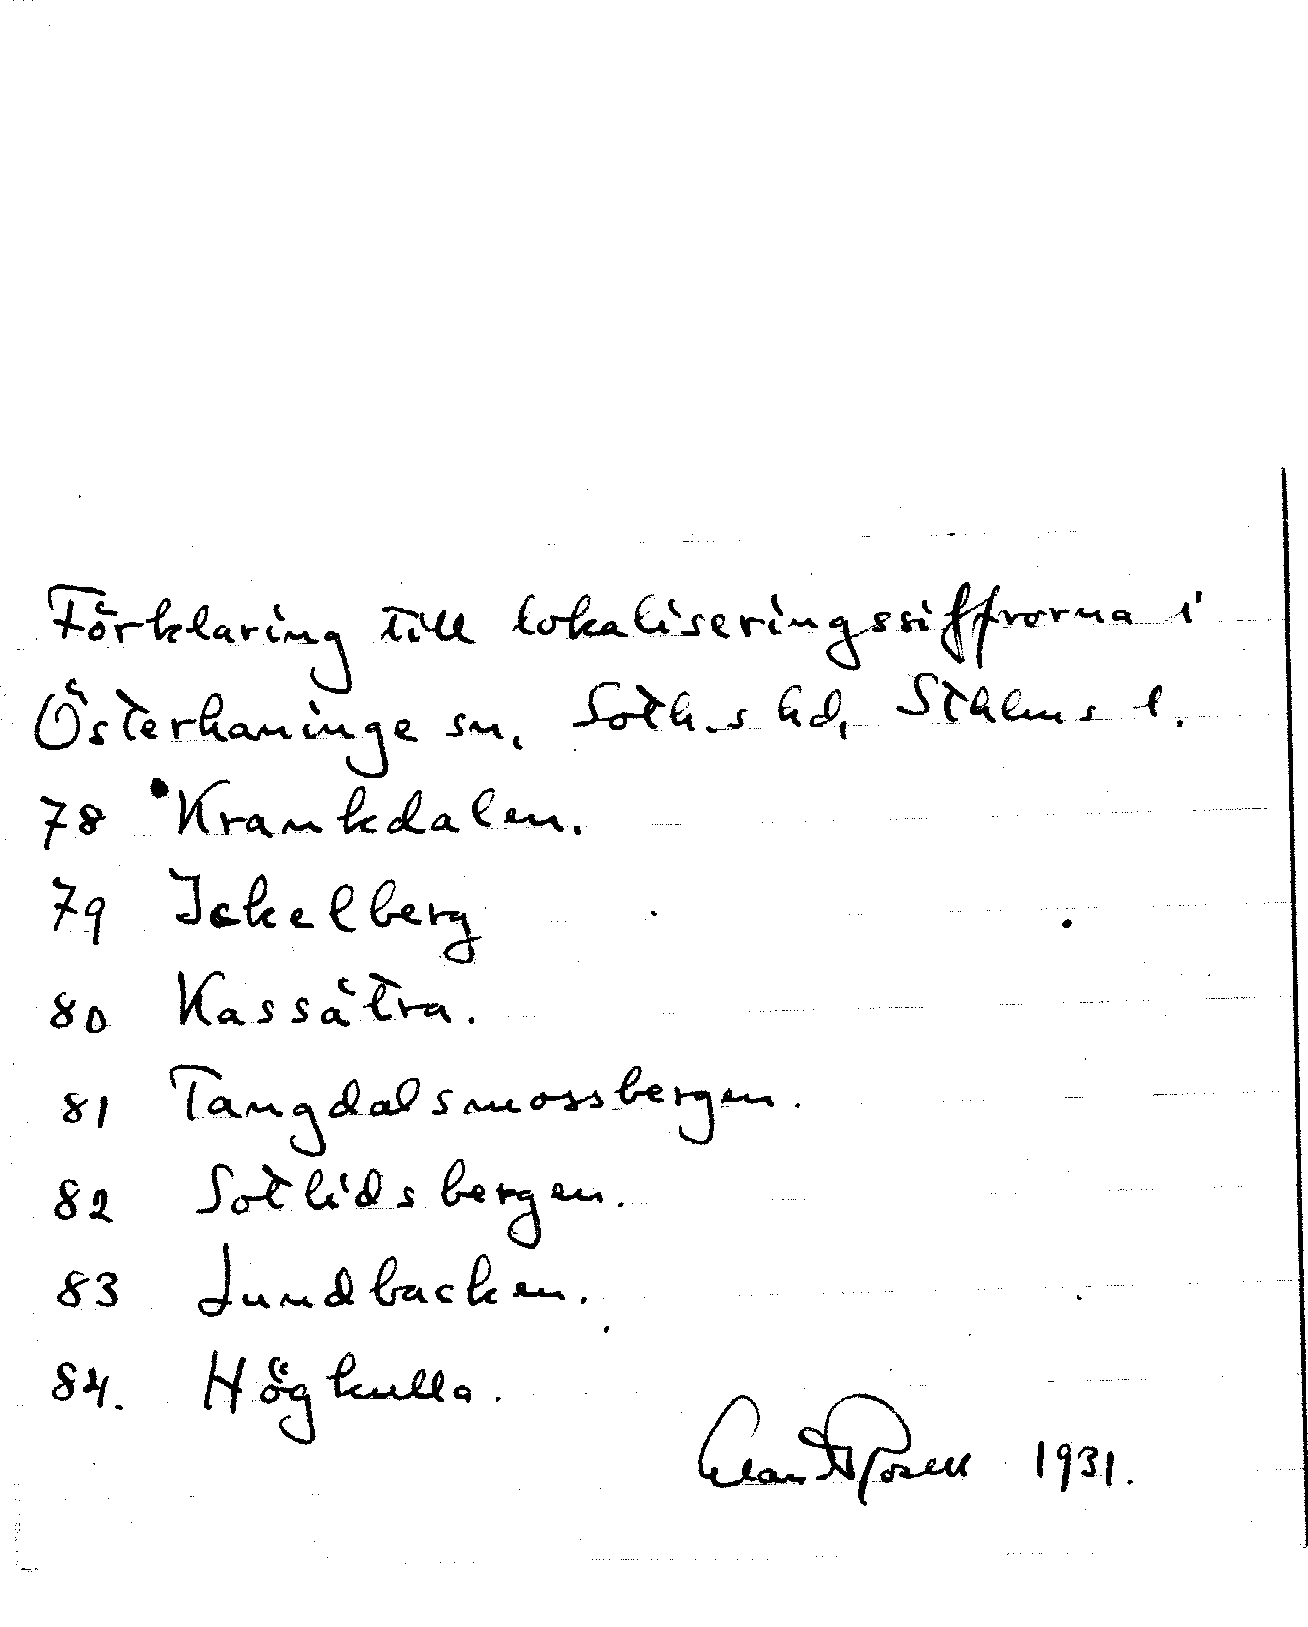 Förklaring till lokaliseringssiffrorna i
Österhaninge sn, Soth.s hd, Sthlms l.
78 Krankdalen.
79 Ickelberg
80 Kassätra.
81 Tangdalsmossbergen.
82 Sotlidsbergen.
83 Lundbacken.
84. Högkulla.
1931.